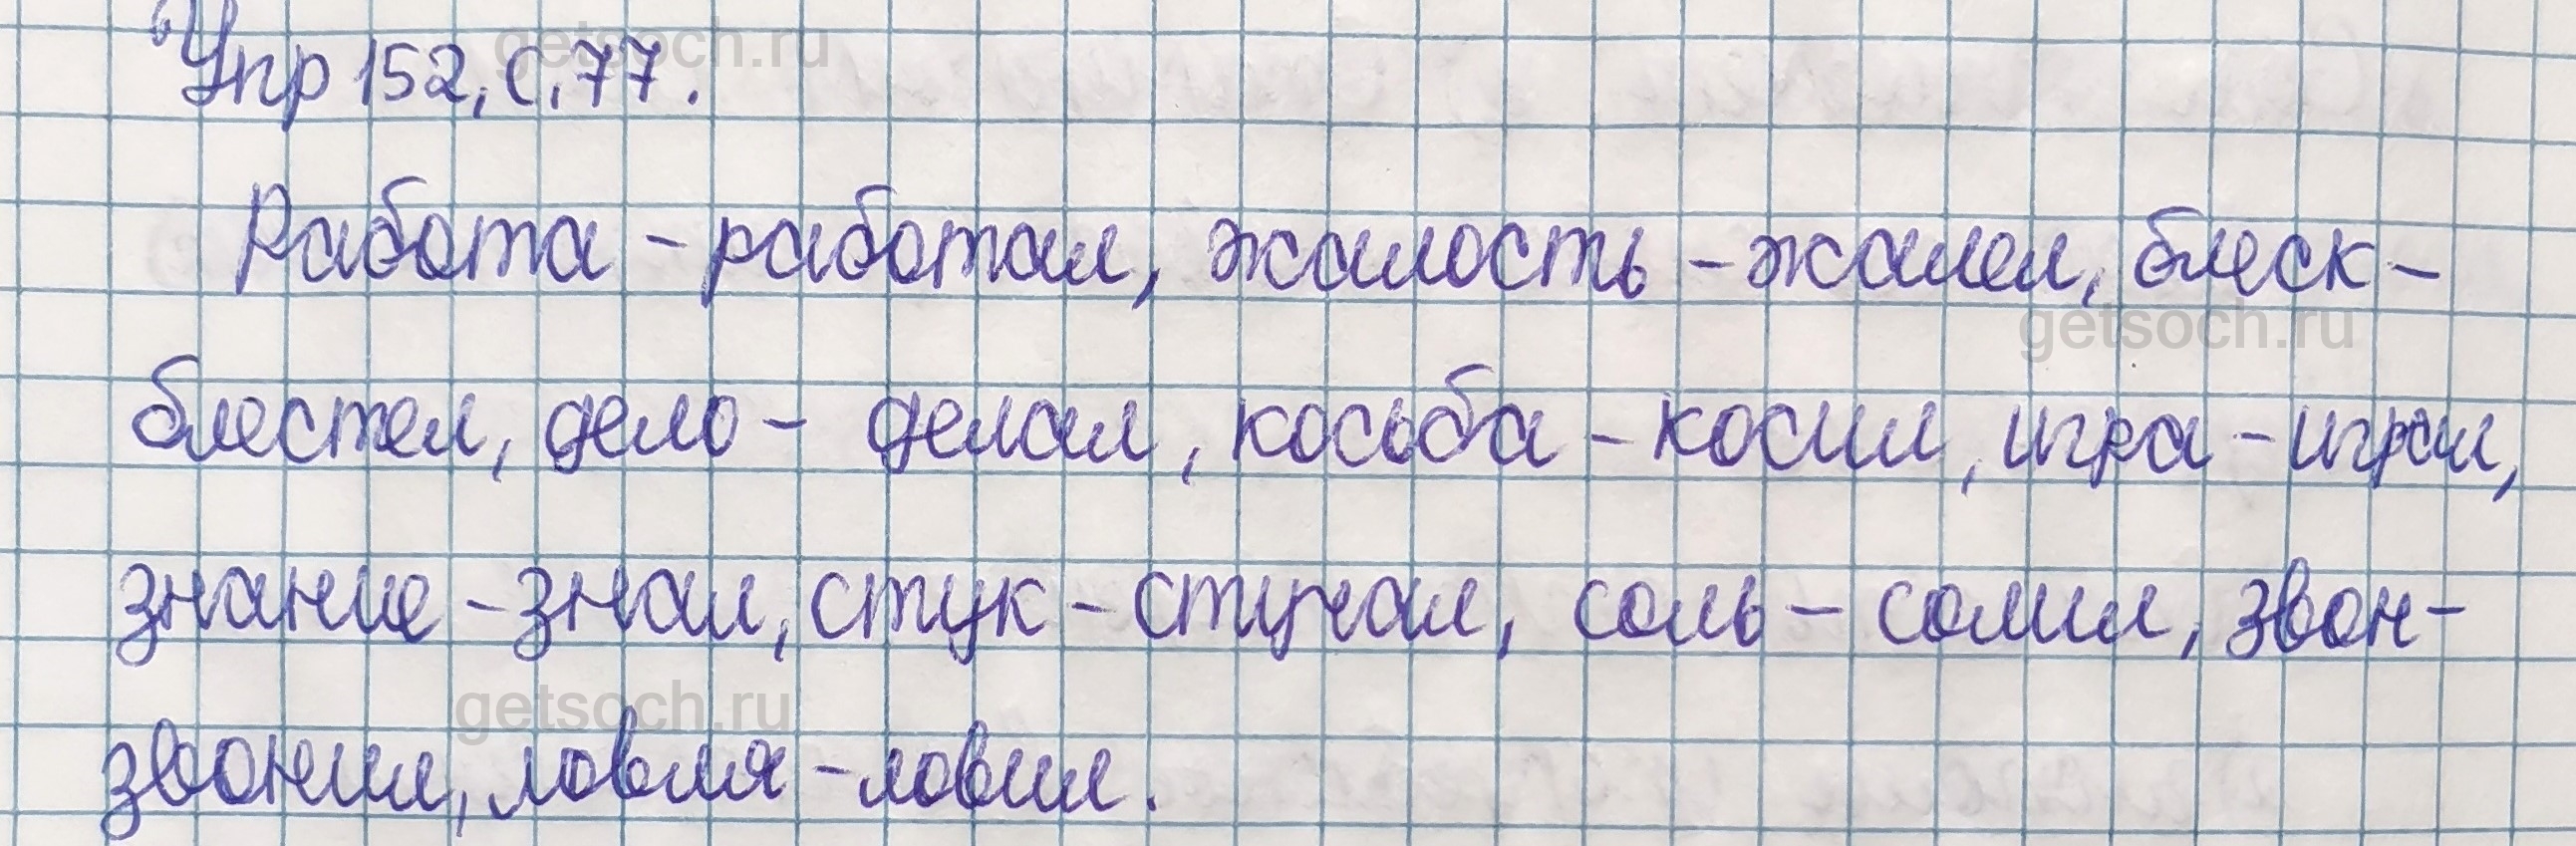 getsoch.ru
Упр 152, с. 77.
Работа - работал, жалость - жалел, блеск -
getsoch.ru
блестел, дело - делал, косьба - косил, игра - играл,
знание - знал, стук - стучал, соль - солил, звон -
getsoch.ru
звонил, ловля - ловил.